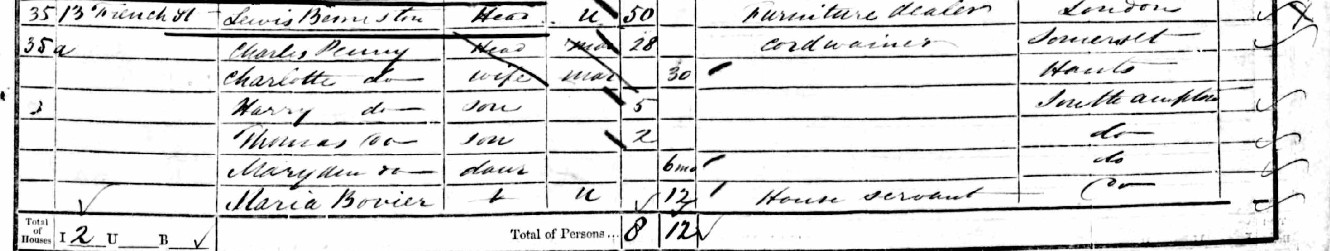 35 13 French St Lewis Bernston Head U 50 Furniture dealer London
35a Charles Penny Head Mar 28 Cordwainer Somerset
Charlotte do wife mar 30 Hants
3 Harry do son 5 Southampton
Thomas do son 2 do
Mary Ann do daur 6mo do
Maria Bovier U 12 House servant do
Total of Houses I 2 U B Total of Persons... 8 12